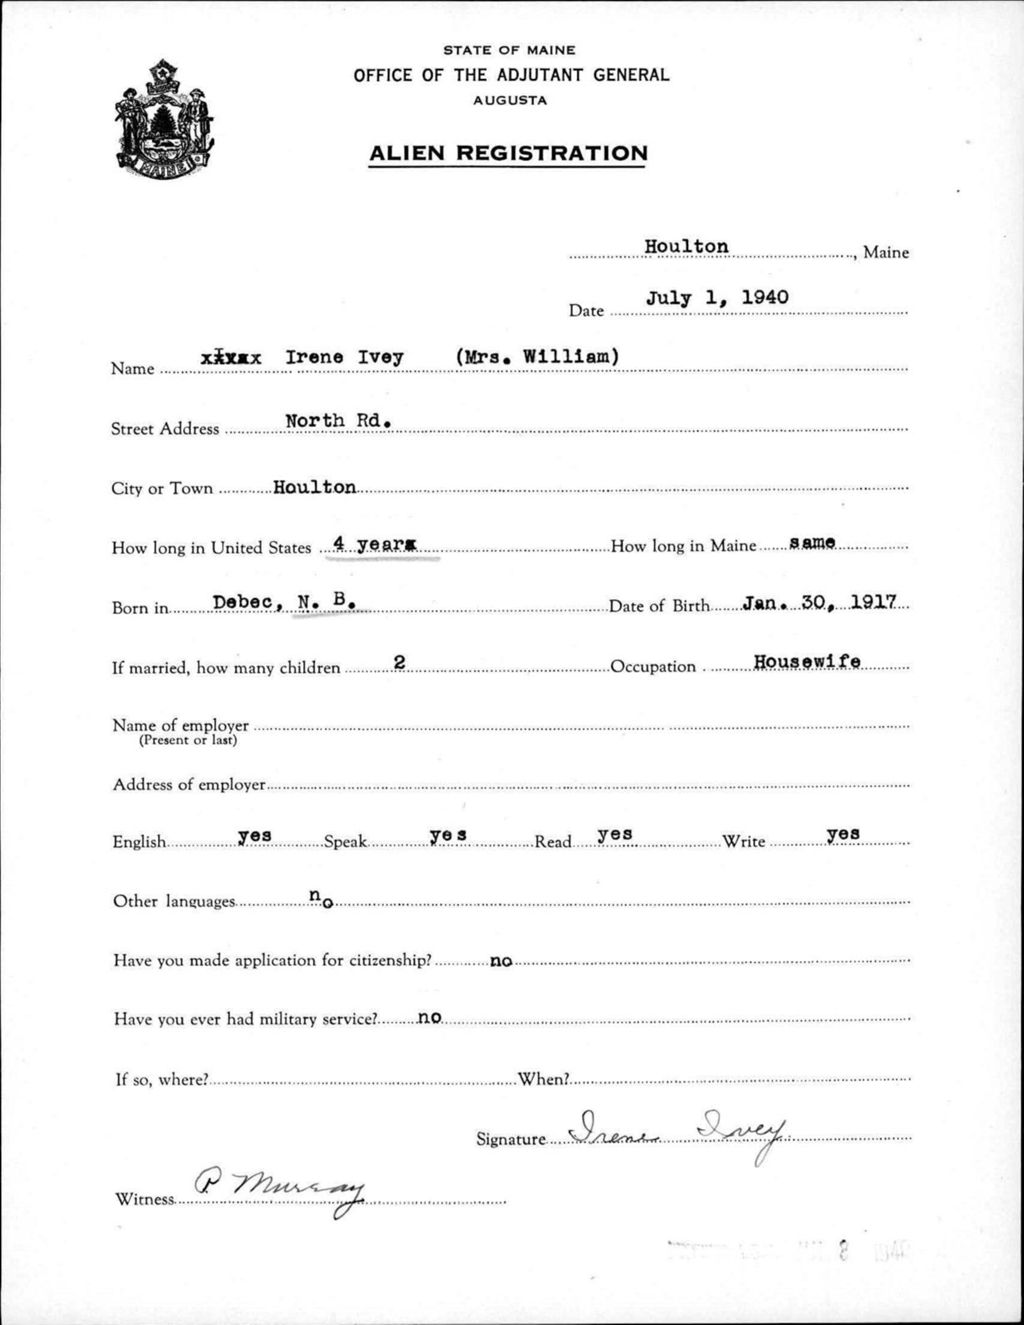 STATE OF MAINE
OFFICE OF THE ADJUTANT GENERAL
AUGUSTA
ALIEN REGISTRATION
MAINE
Houlton, Maine
Date July 1, 1940
Name Irene Ivey (Mrs. William)
Street Address North Rd.
City or Town Houlton
How long in United States 4 years How long in Maine same
Born in Debec, N. B. Date of Birth Jan. 30, 1917
If married, how many children 2 Occupation Housewife
Name of employer
(Present or last)
Address of employer
English yes Speak yes Read yes Write yes
Other languages no
Have you made application for citizenship? no
Have you ever had military service? no
If so, where? When?
Signature Irene Ivey
Witness P Murray